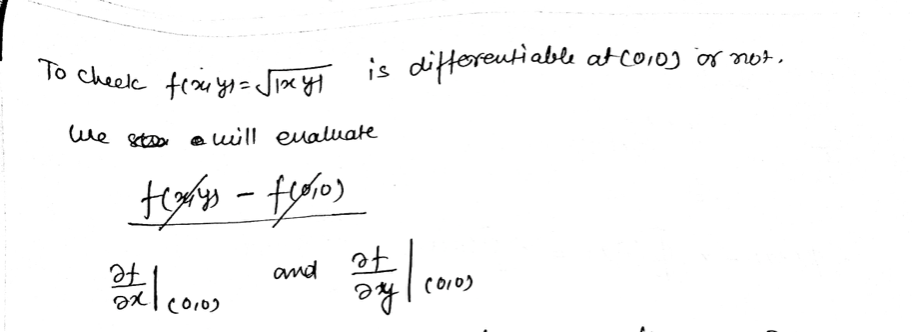 To check f(x,y) = √|xy| is differentiable at (0,0) or not.
We will evaluate
f(x,y) - f(0,0)
∂f/∂x|(0,0) and ∂f/∂y|(0,0)